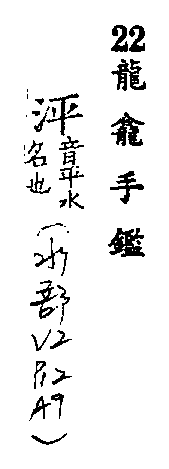 22龍龕手鑑
泙音平水名也(水部V2P12A9)